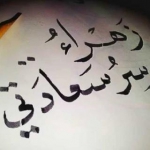 زَهْرَاءُ
سر سَعَادَتِي